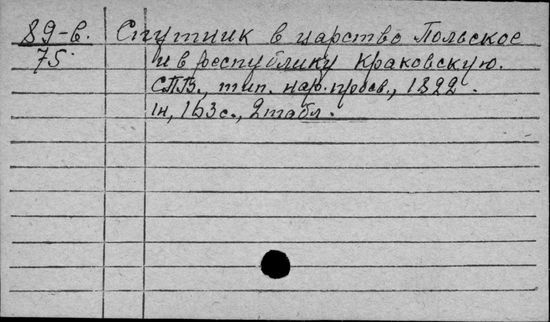 89-в. Спутник в царство Польское
75 и в республику Краковскую.
СПБ., тип. нар. просв., 1822.
1н, 163с., 2 табл.